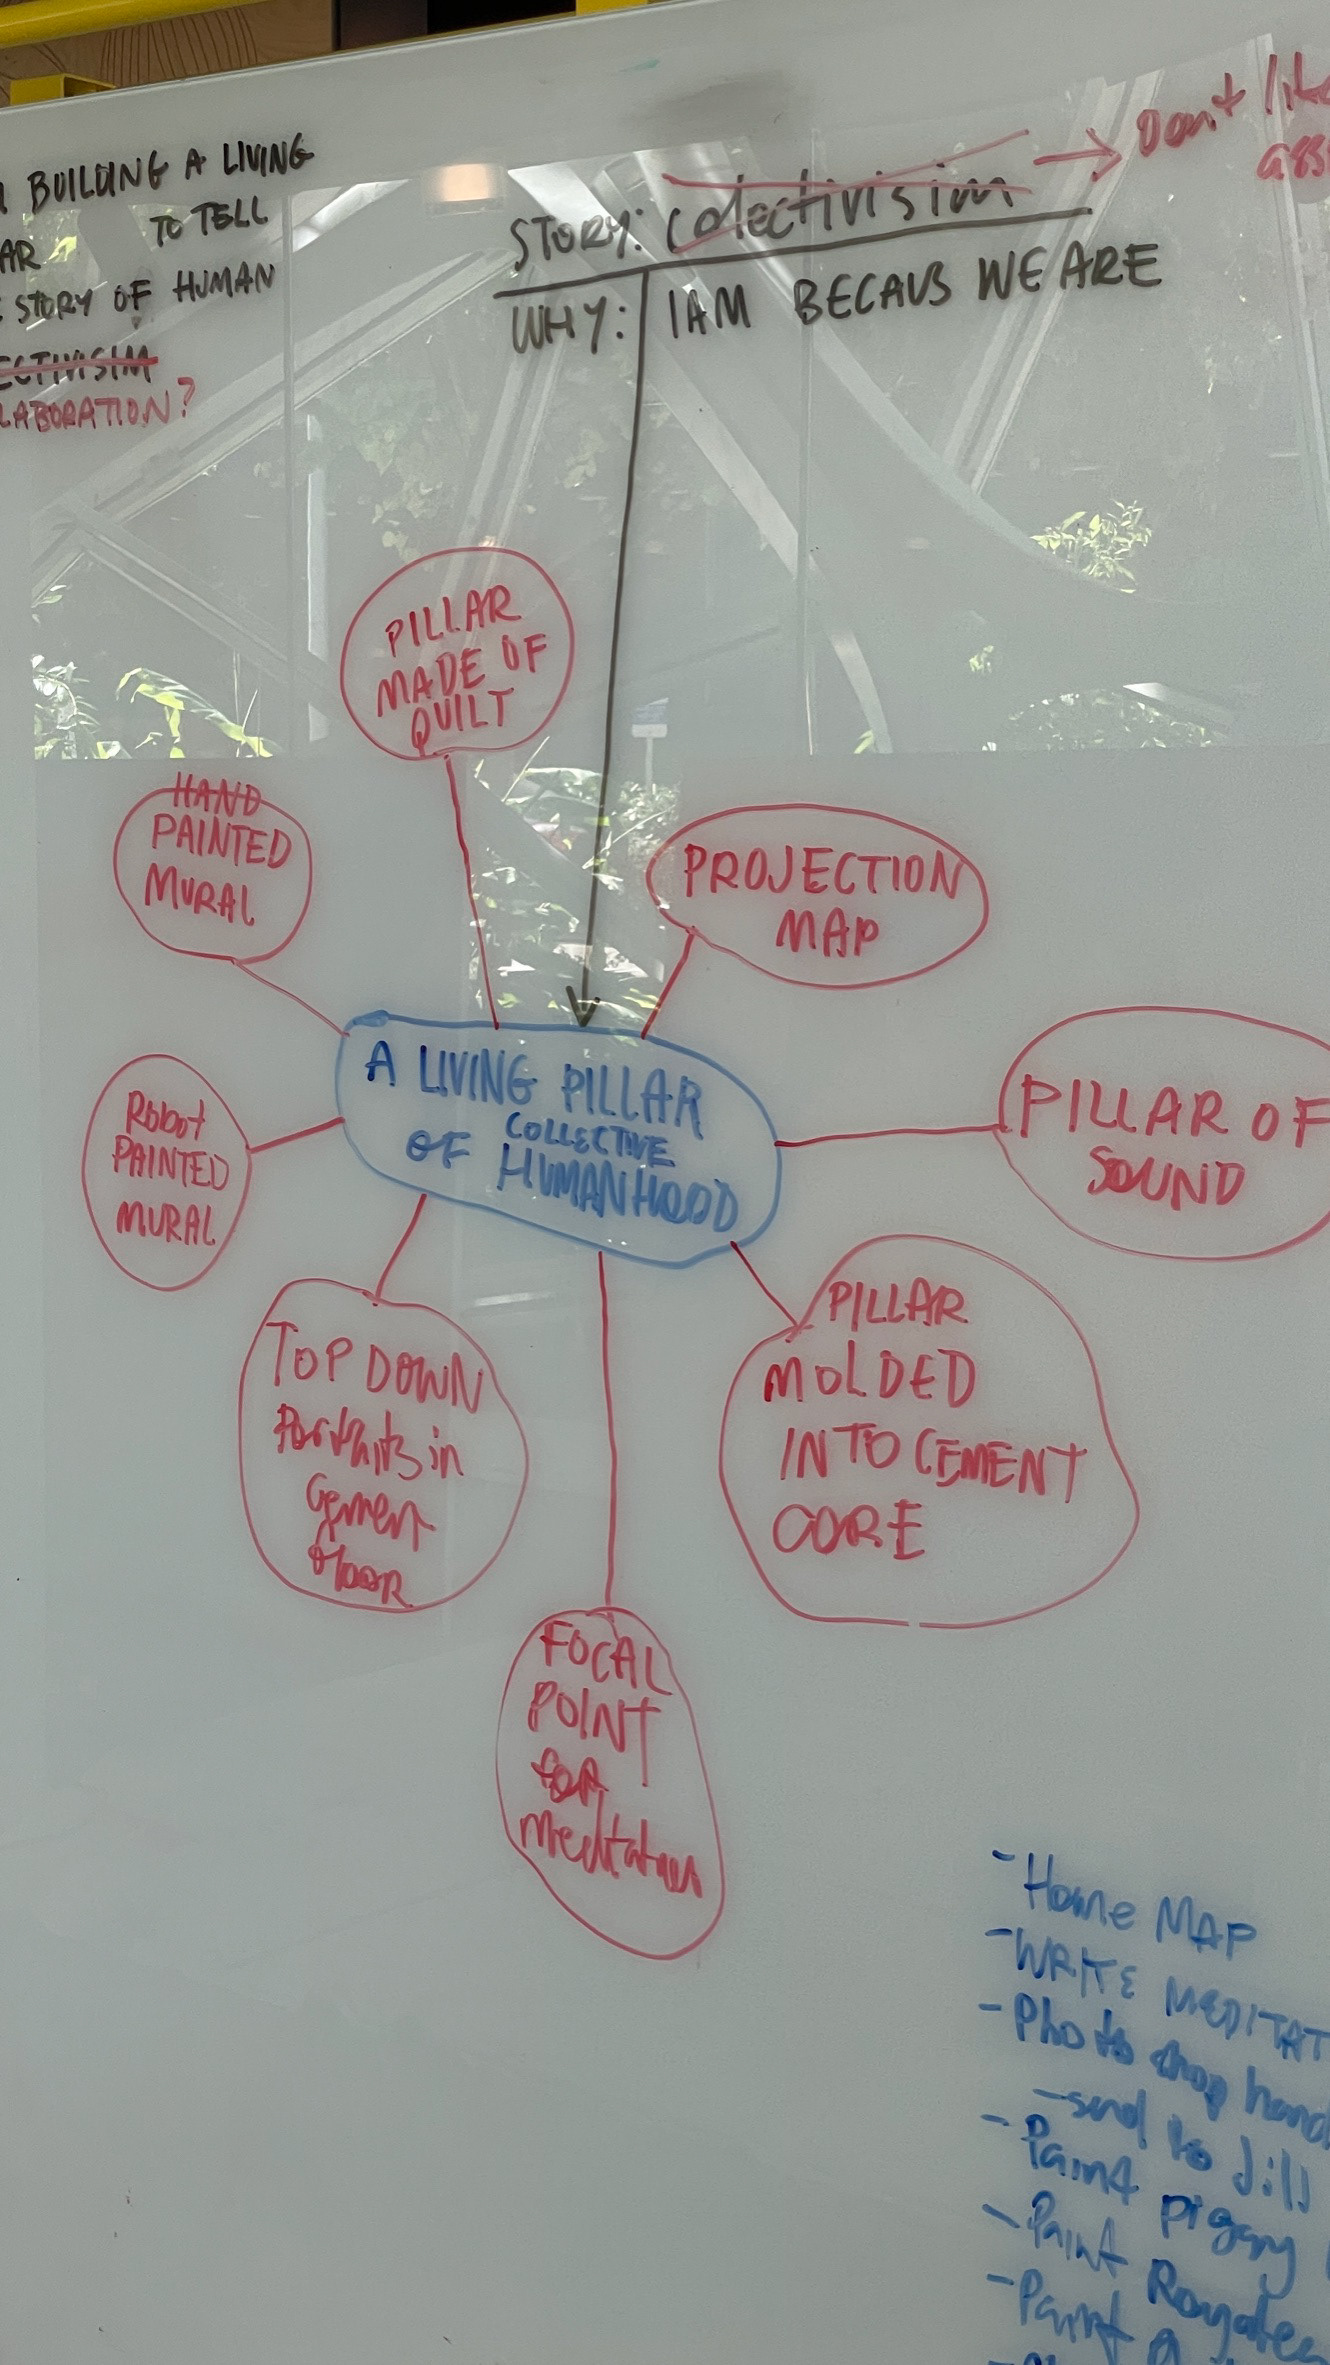 BUILDING A LIVING
AR TO TELL
STORY OF HUMAN
ECTIVISIM
LABORATION?
STORY: colectivisim
Don't like
ass
WHY: I AM BECAUS WE ARE
PILLAR
MADE OF
QUILT
HAND
PAINTED
MURAL
PROJECTION
MAP
A LIVING PILLAR
COLLECTIVE
OF HUMANHOOD
Robot
PAINTED
MURAL
PILLAR OF
SOUND
TOP DOWN
Portraits in
Cement
floor
PILLAR
MOLDED
INTO CEMENT
CORE
FOCAL
POINT
for
meditation
- Home MAP
- WRITE MEDITAT
- Photo shop hand
- send to Jill
- Paint
- Paint
- Paint